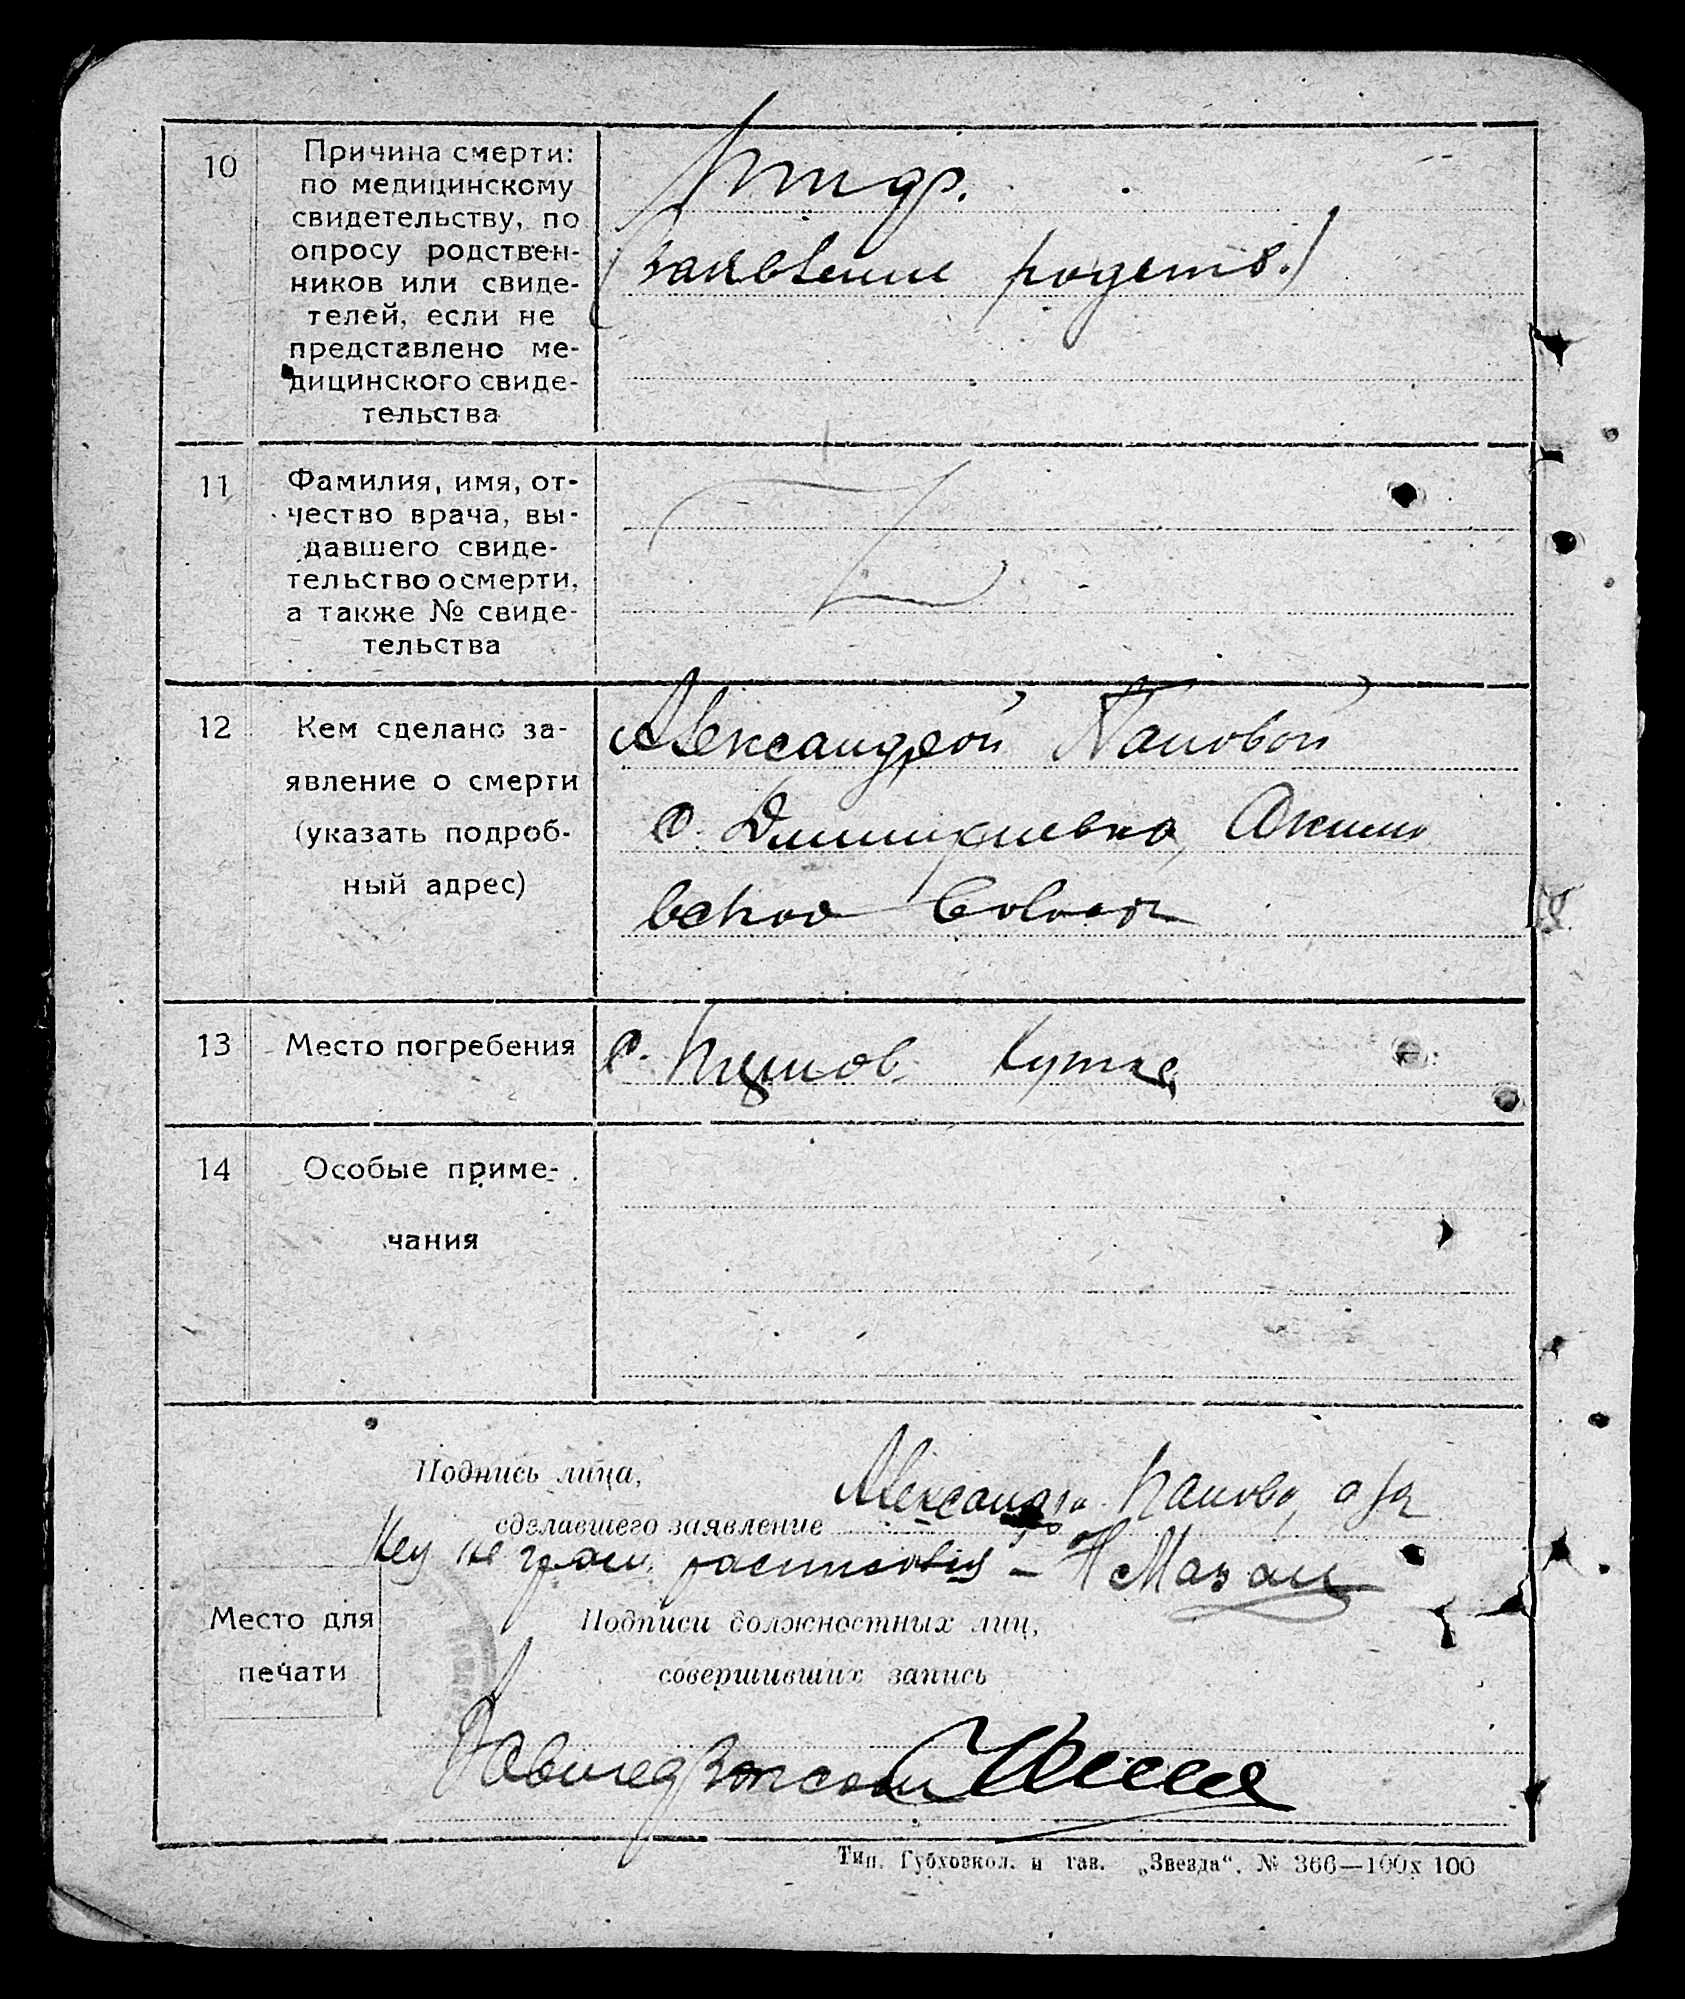 10
Причина смерти:
по медицинскому
свидетельству, по
опросу родствен-
ников или свиде-
телей, если не
представлено ме-
дицинского свиде-
тельства
(заявление родств.)
11
Фамилия, имя, от-
чество врача, вы-
давшего свиде-
тельство о смерти,
а также № свиде-
тельства
Z
12
Кем сделано за-
явление о смерти
(указать подроб-
ный адрес)
Александрой Пановой
с. Дмитриевка, Акимо
вской
13
Место погребения
с.
14
Особые приме-
чания
Подпись лица,
сделавшего заявление
Александра Панова, а за
Неу не грам. расписался –
Место для
печати
Подписи должностных лиц,
совершивших запись
Тип. Губхозкол. и газ. „Звезда“. № 366—100х100